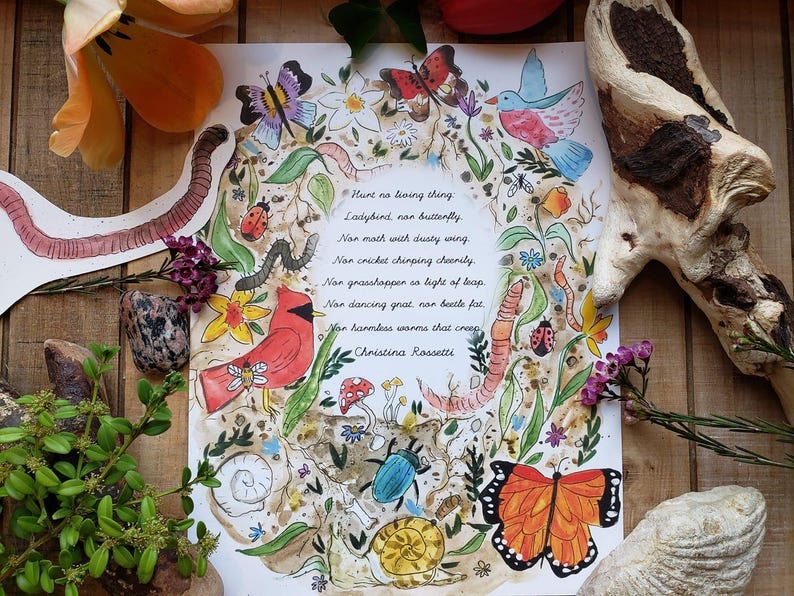 Hurt no living thing:
Ladybird, nor butterfly,
Nor moth with dusty wing,
Nor cricket chirping cheerily,
Nor grasshopper so light of leap,
Nor dancing gnat, nor beetle fat,
Nor harmless worms that creep.
Christina Rossetti